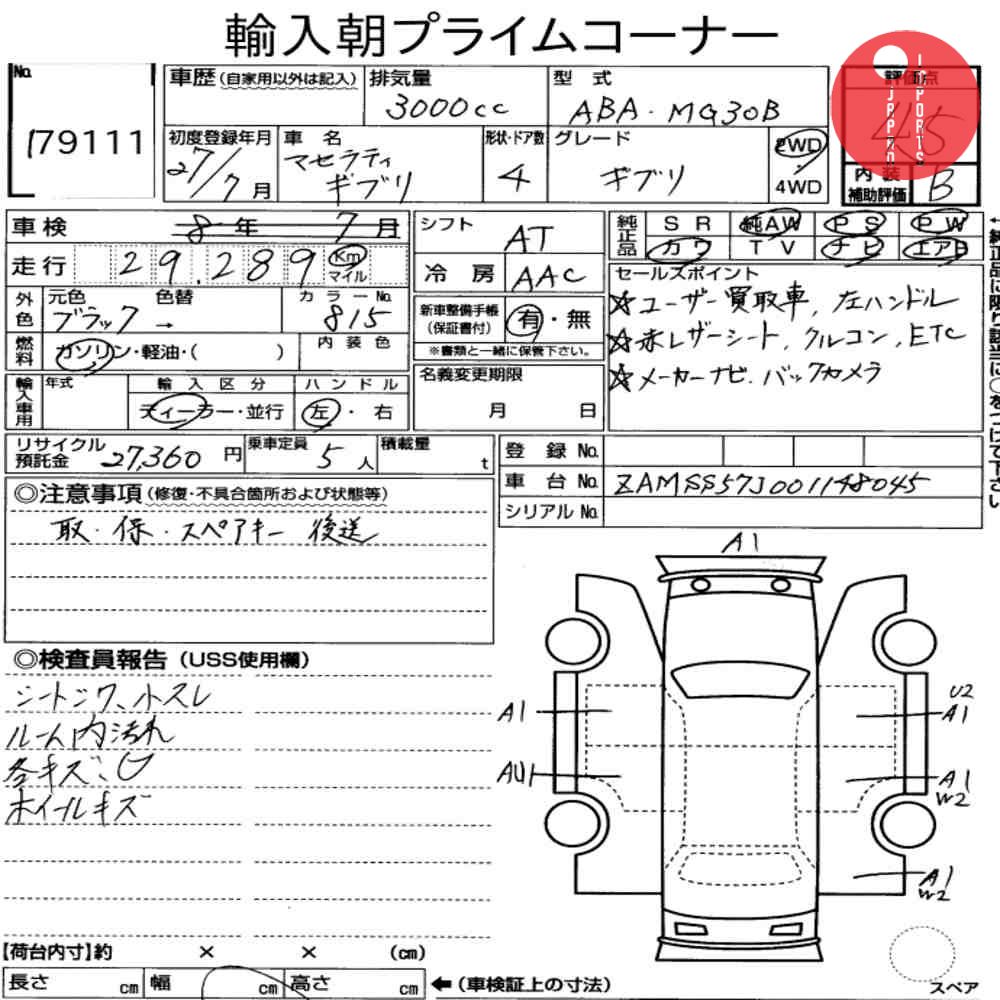 輸入朝プライムコーナー
No.
179111
車歴(自家用以外は記入)
排気量
3000cc
型 式
ABA-MG30B
評価点
4.5
JAPAN IMPORTS
初度登録年月
27/7月
車 名
マセラティ
ギブリ
形状・ドア数
4
グレード
ギブリ
2WD
・
4WD
内 装
補助評価
B
車検 8年 7月
走行 29,289 Km マイル
シフト
AT
冷 房 AAC
純正品 SR 純AW PS PW
カワ TV ナビ エアB
外色 元色 色替 カラーNo.
ブラック → 815
新車整備手帳
(保証書付)
有・無
※書類と一緒に保管下さい。
燃料 ガソリン・軽油・( )
内装色
セールスポイント
☆ユーザー買取車, 左ハンドル
☆赤レザーシート, クルコン, ETC
☆メーカーナビ. バックカメラ
←純正品に限り該当に○をつけて下さい
輸入車用 年式 輸入区分 ハンドル
ディーラー・並行 左・右
名義変更期限
月 日
リサイクル
預託金 27,360円
乗車定員 5人
積載量 t
登 録 No.
車 台 No. ZAMSS57J001148045
シリアル No.
◎注意事項(修復・不具合箇所および状態等)
取・保・スペアキー 後送
◎検査員報告(USS使用欄)
シートシワ、小スレ
ルーム内汚れ
各キズ、U
ホイールキズ
A1
A1
AU1
U2
A1
A1
W2
A1
W2
スペア
【荷台内寸】約 × × (cm)
長さ cm 幅 cm 高さ cm ←(車検証上の寸法)